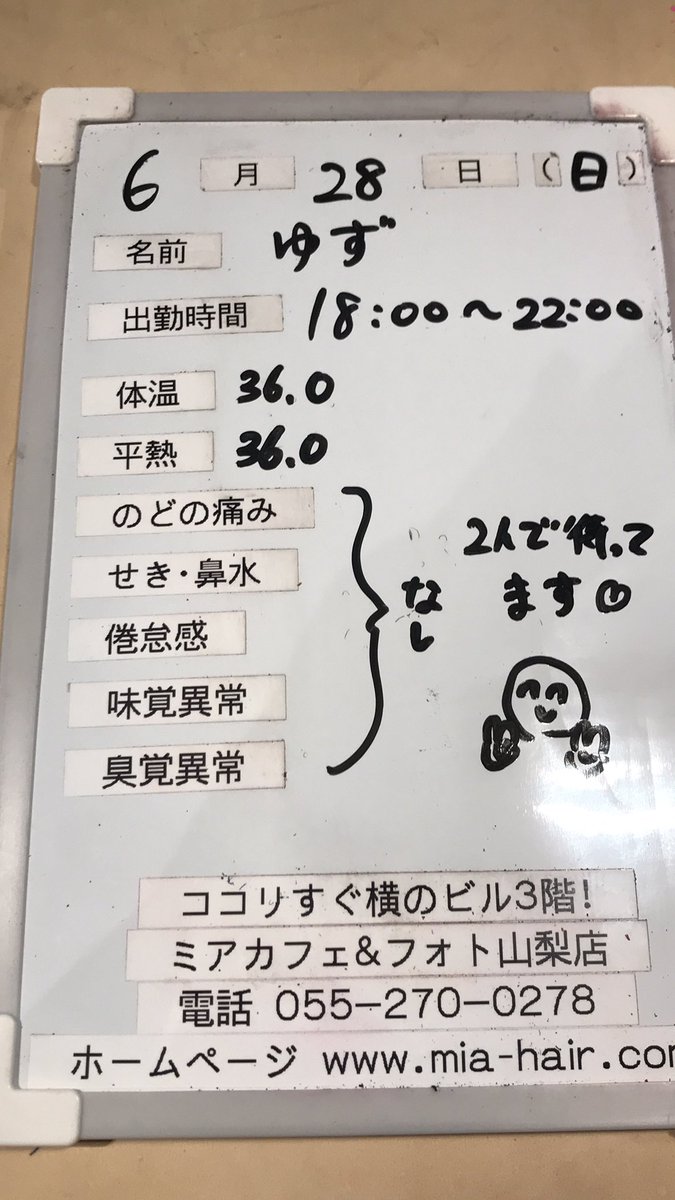 6 月 28 日 (日)
名前 ゆず
出勤時間 18:00〜22:00
体温 36.0
平熱 36.0
のどの痛み
せき・鼻水
倦怠感
味覚異常
臭覚異常
なし
2人で待って
ます
ココリすぐ横のビル3階!
ミアカフェ&フォト山梨店
電話 055-270-0278
ホームページ www.mia-hair.com